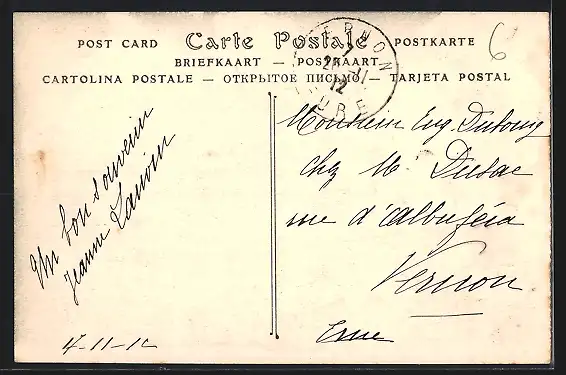 POST CARD Carte Postale POSTKARTE
BRIEFKAART — POSTKAART
CARTOLINA POSTALE — ОТКРЫТОЕ ПИСЬМО — TARJETA POSTAL
6
VERNON
12
EURE
Un bon souvenir
Jeanne
4-11-1
Monsieur Eug.
chez M.
rue d'Albuféra
Vernon
Eure